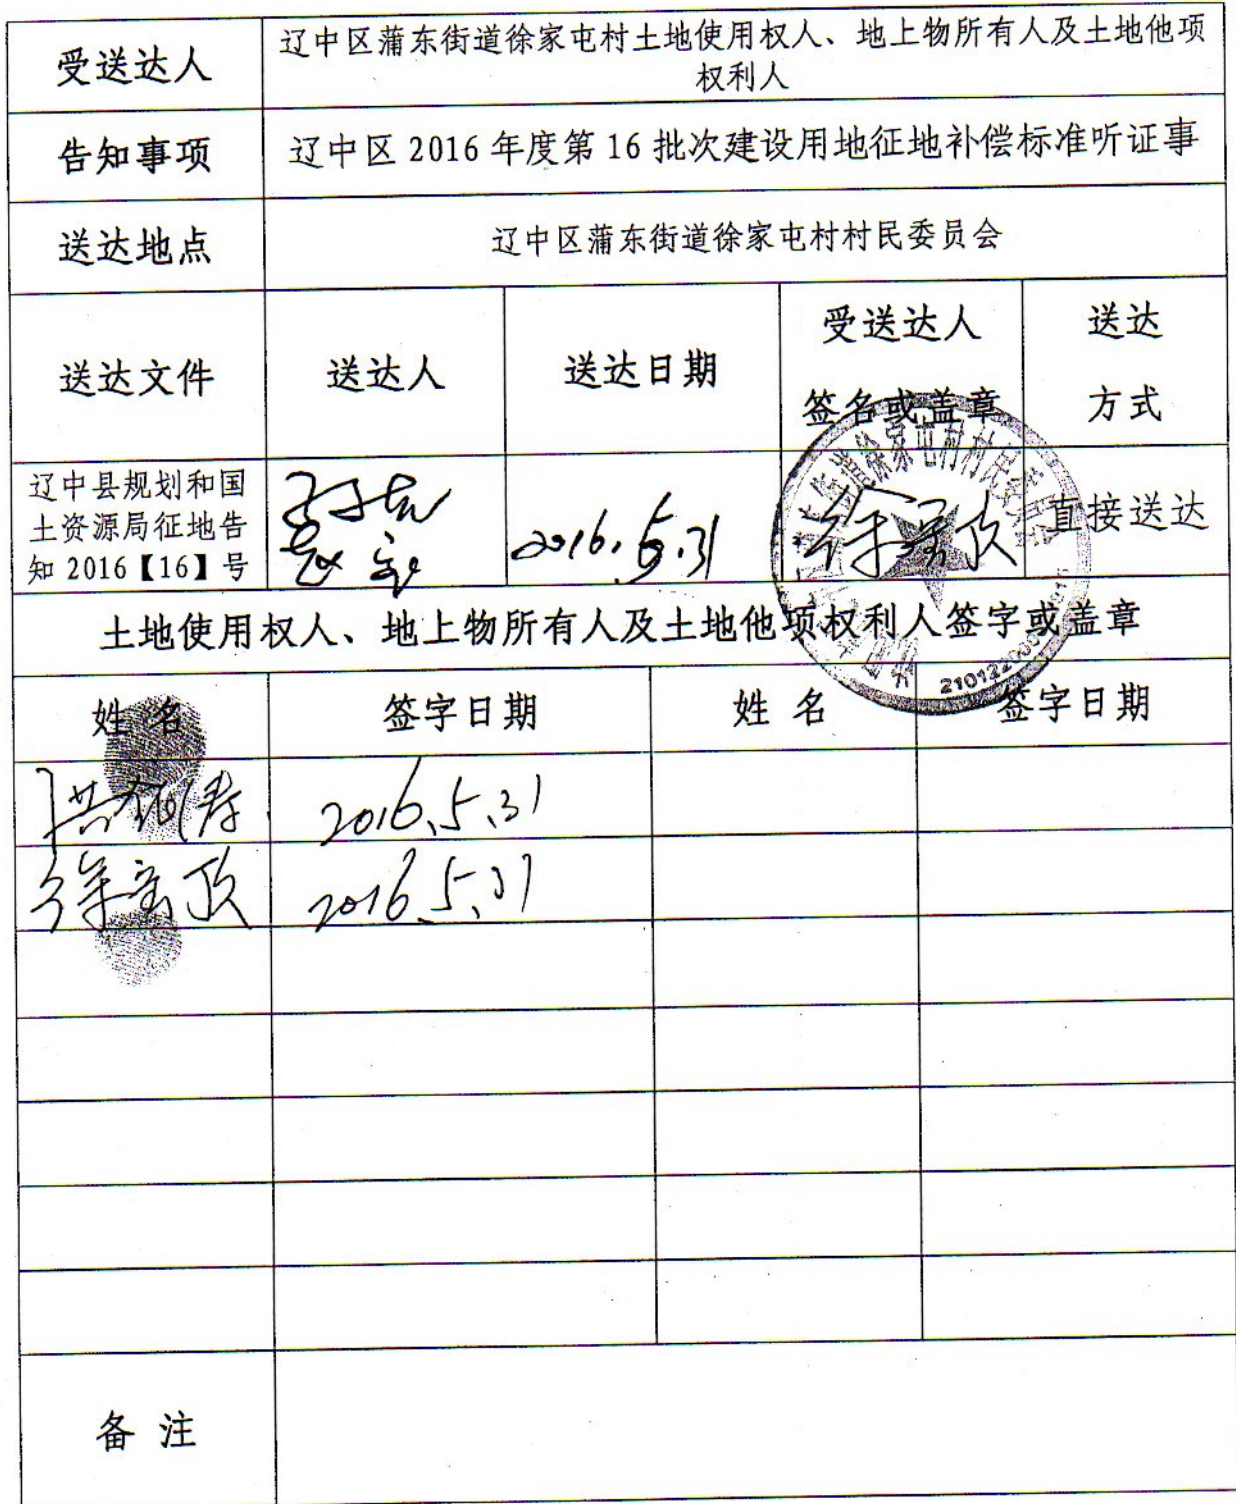 受送达人
辽中区蒲东街道徐家屯村土地使用权人、地上物所有人及土地他项
权利人
告知事项
辽中区 2016 年度第 16 批次建设用地征地补偿标准听证事
送达地点
辽中区蒲东街道徐家屯村村民委员会
送达文件
送达人
送达日期
受送达人
签名或盖章
送达
方式
辽中县规划和国
土资源局征地告
知 2016【16】号
2016.5.31
直接送达
土地使用权人、地上物所有人及土地他项权利人签字或盖章
姓 名
签字日期
姓 名
签字日期
2016.5.31
2016.5.31
备 注